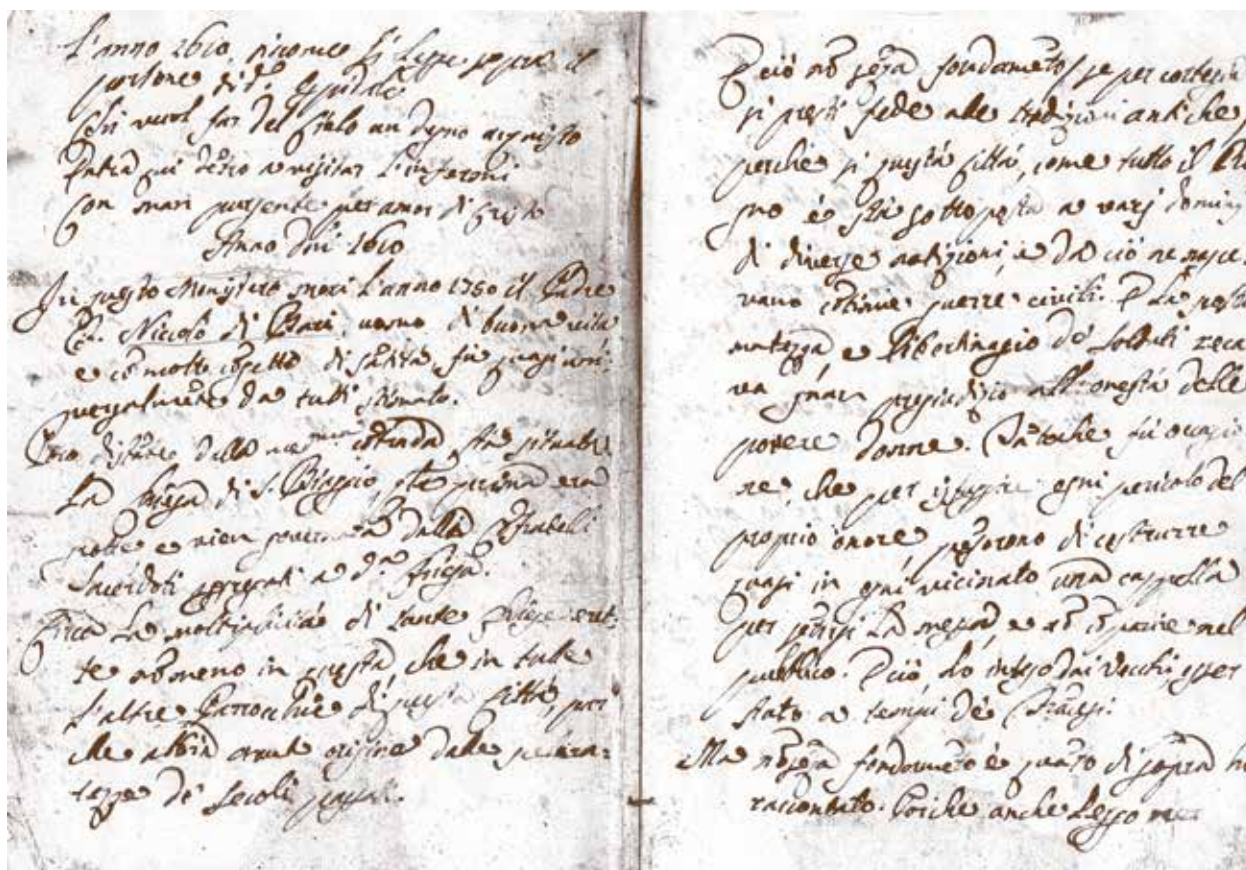 L'anno 1610, sicome si legge sopra il
portone di d.º Ospidale
Chi vuol far del Cielo un degno acquisto
Entra qui détro a visitar l'infermi
Con mani porgente per amor di Cristo
Anno Dñi 1610
In questo Monistero morì l'anno 1750 il Padre
Fr. Nicolò di Bari, uomo di buona vita
e cõ molto cõcetto di sãtità, fù quasi uni-
versalmẽte da tutti stimato.
Poco distãte dalla mede.ma contrada stà situata
La Chiesa di S. Biaggio,
e vien governata dalli Fratelli
Sacerdoti aggregati a d.ª Chiesa.
Circa La moltiplicità di tante Chiese eret-
te nõ meno in questa, che in tutte
l'altre Parrocchie di questa Città, par
che abbia avuta origine dalle
de' Secoli passati.
E ciò nõ sẽza fondamẽto, se per cortesia
si presti fede alle tradizioni antiche,
perche si questa Città, come tutto il Re-
gno è stã sottoposta a varj dominj
di diverse nazzioni, e da ciò ne nasce-
vano cõtinue guerre civili. E La
e libertinaggio de' Soldati reca-
va gran pregiudizio all'onestà delle
povere donne. Tãtoche fù occasio-
ne, che per isfuggire ogni pericolo del
proprio onore, pẽsorono di costrurre
quasi in ogni vicinato una cappella
per sẽtirsi La messa, e nõ cõparire nel
publico. E ciò, hò inteso dai Vecchi, esser
stato a tempi de' Frãcesi.
Ma nõ sẽza fondamẽto è quãto di sopra hò
raccontato. Poiche anche Leggo